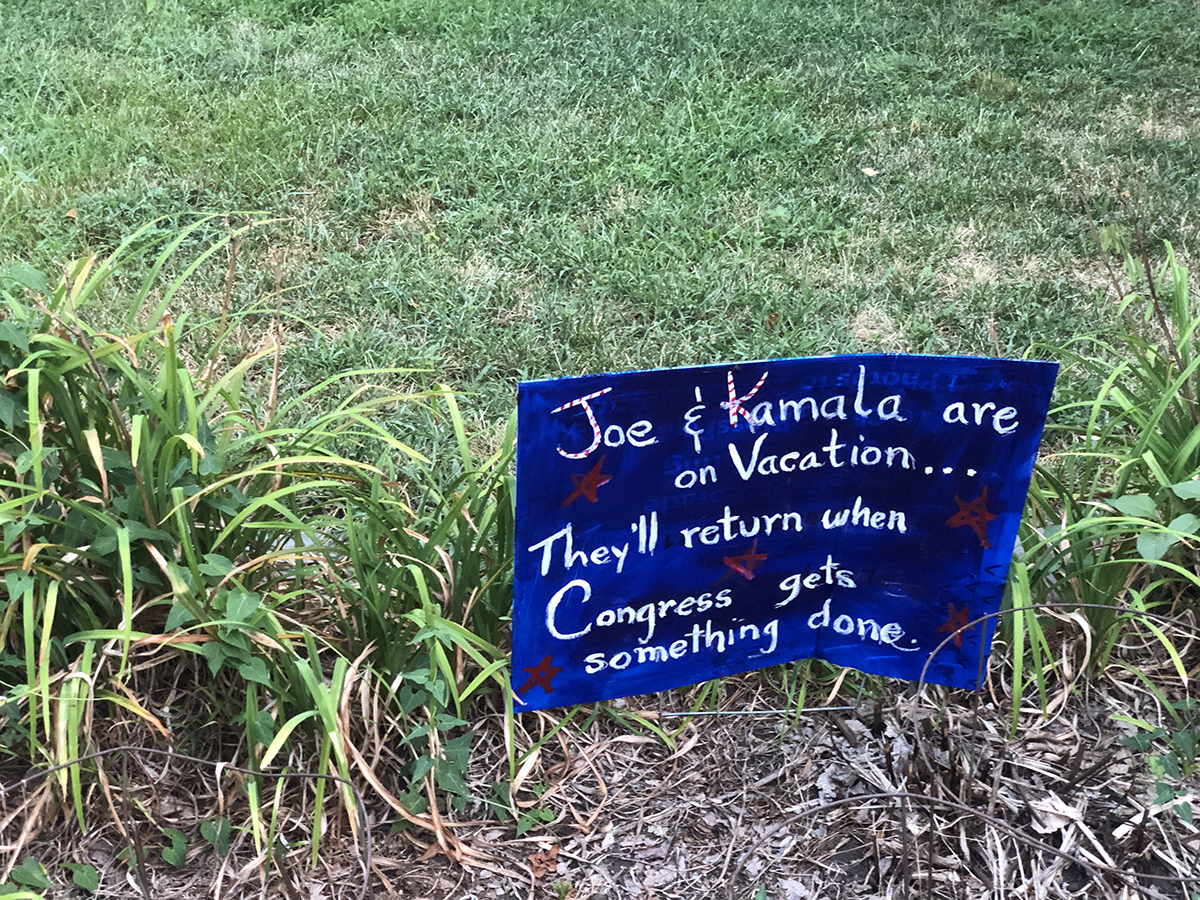 Joe & Kamala are
on Vacation...
They'll return when
Congress gets
something done.